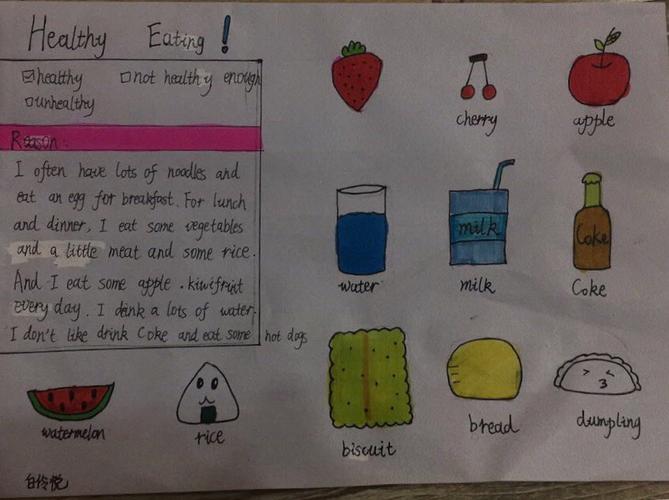 Healthy Eating!
☑healthy □not healthy enough
□unhealthy
Reason:
I often have lots of noodles and
eat an egg for breakfast. For lunch
and dinner, I eat some vegetables
and a little meat and some rice.
And I eat some apple . kiwifruit
every day. I drink a lots of water.
I don't like drink Coke and eat some hot dogs
cherry
apple
milk
Coke
water
milk
Coke
watermelon
rice
biscuit
bread
dumpling